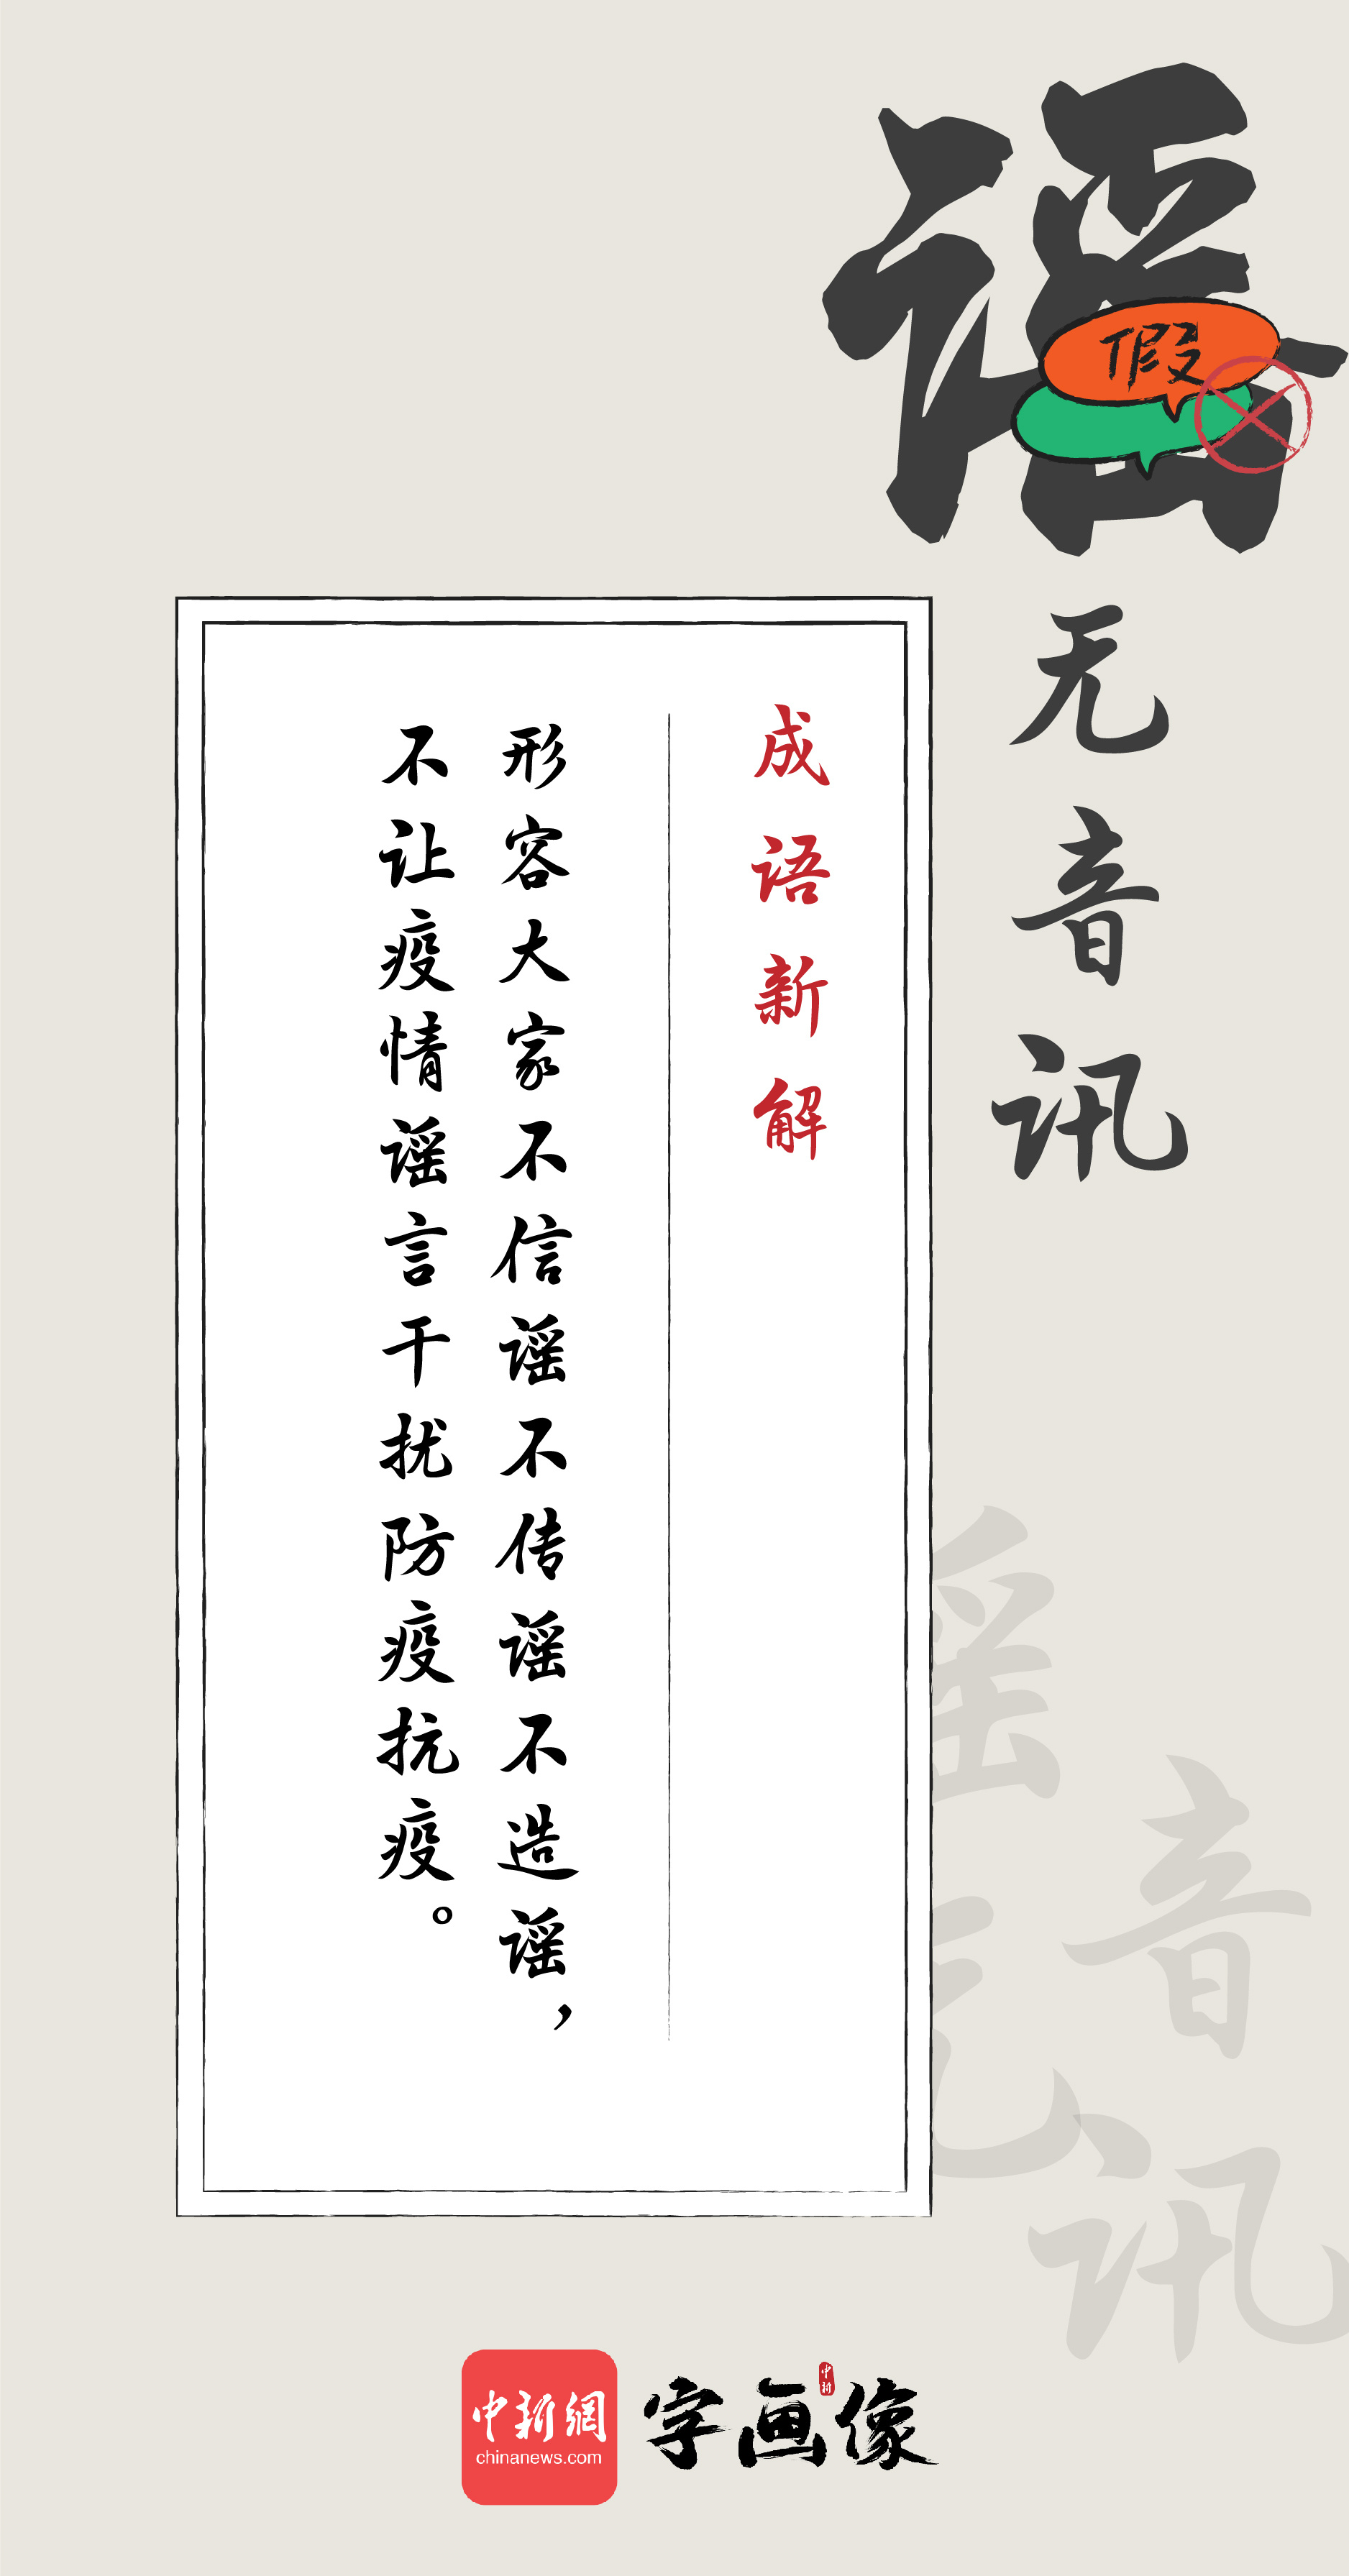 谣无音讯
假
成语新解
形容大家不信谣不传谣不造谣，
不让疫情谣言干扰防疫抗疫。
谣无
音讯
中新網
chinanews.com
字画像
中新